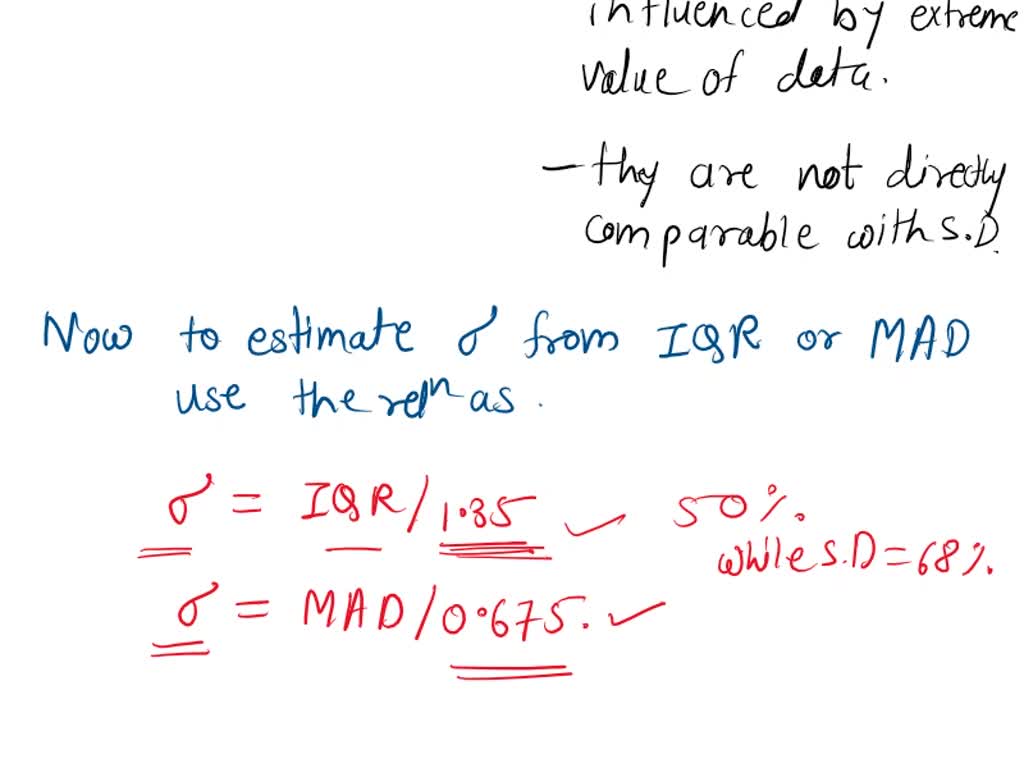 influenced by extreme
value of data.
- they are not directly
comparable with S.D.
Now to estimate σ from IQR or MAD
use the relⁿ as.
σ = IQR/1.35 ✓ 50%.
while S.D = 68%.
σ = MAD/0.675. ✓